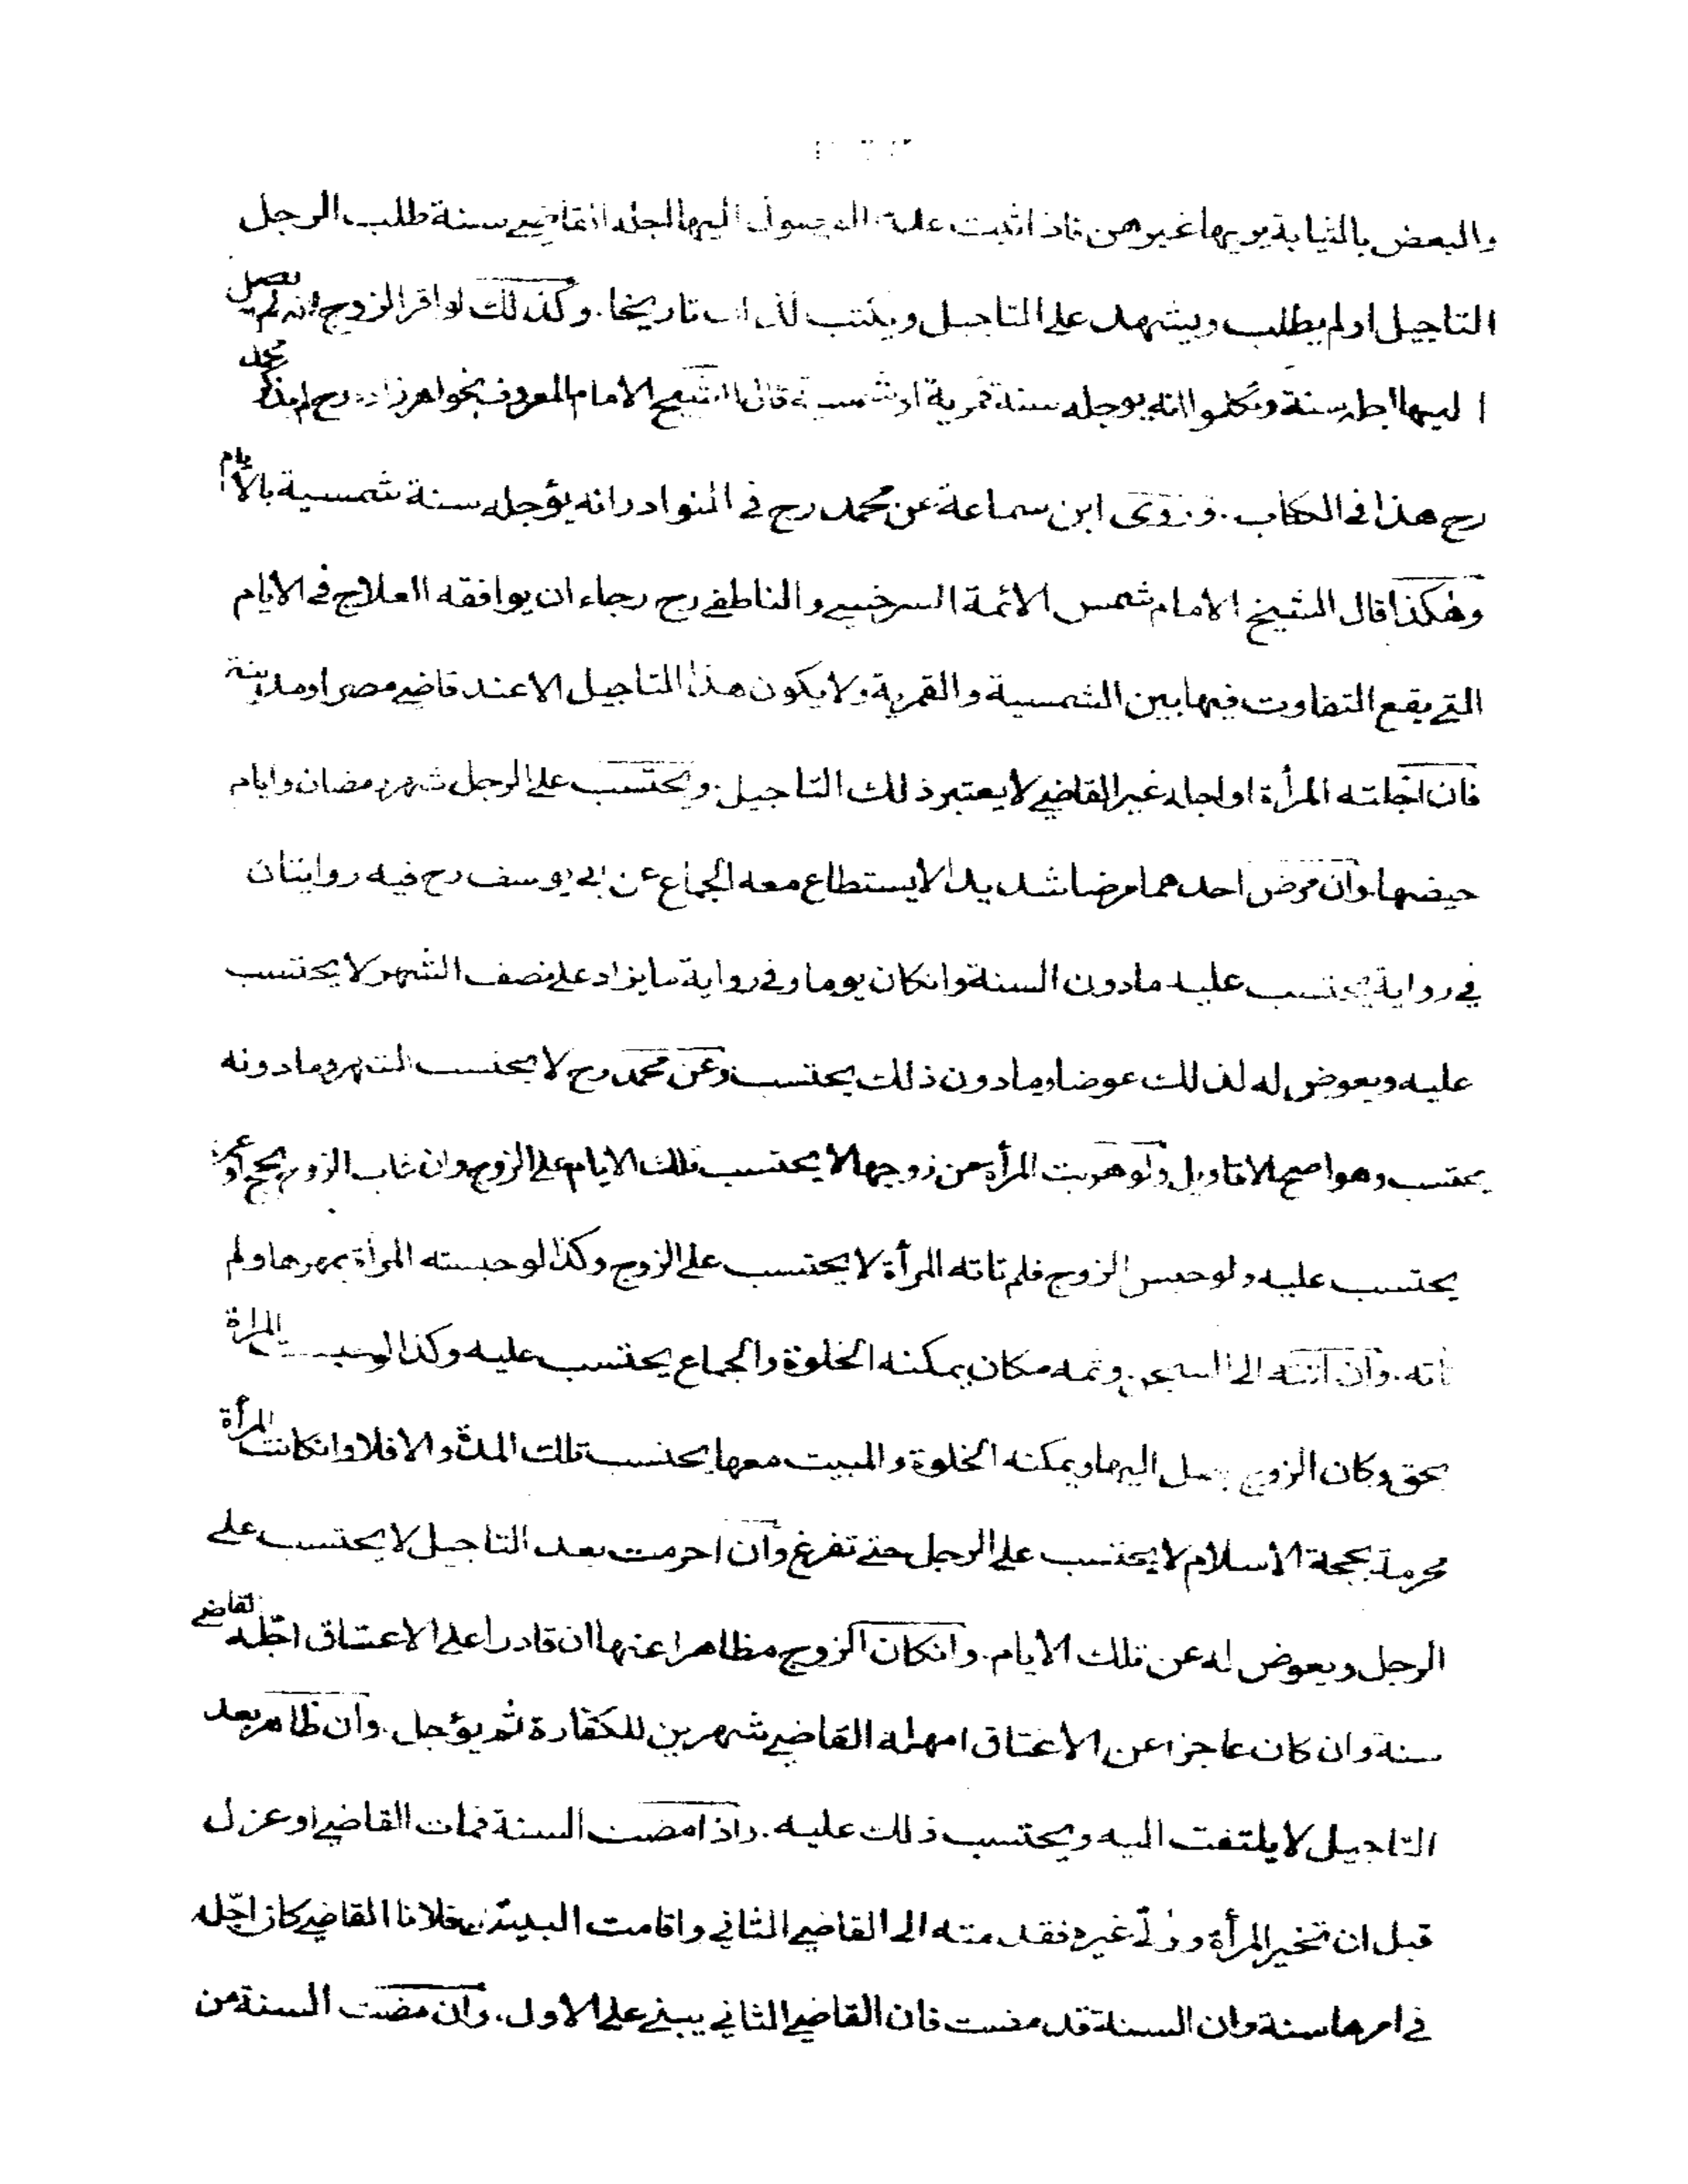 والبعض بالنيابة يريها غيرهن فاذا ثبت عدم الوصول اليها اجله القاضي سنة طلب الرجل
التاجيل اولم يطلب ويشهد على التاجيل ويكتب لذلك تاريخا. وكذلك لو اقر الزوج انه لم يصل
اليها اجله سنة وتكلموا انه يوجله سنة قمرية او شمسية قال الشيخ الامام المعروف بخواهرزاده رح لم يذكر محمد
رح هذا في الكتاب. وروى ابن سماعة عن محمد رح في النوادر انه يؤجله سنة شمسية بالايام
وهكذا قال الشيخ الامام شمس الائمة السرخسي والناطفي رح رجاء ان يوافقه العلاج في الايام
التي يقع التفاوت فيها بين الشمسية والقمرية ولا يكون هذا التاجيل الا عند قاضي مصر او مدينة
فان اجلته المرأة او اجله غير القاضي لا يعتبر ذلك التاجيل. ويحتسب على الرجل شهر رمضان وايام
حيضها. وان مرض احدهما مرضا شديدا لا يستطاع معه الجماع عن ابي يوسف رح فيه روايتان
في رواية يحتسب عليه مادون السنة وانكان يوما وفي رواية ما يزاد على نصف الشهر لا يحتسب
عليه ويعوض له لذلك عوضا وما دون ذلك يحتسب وعن محمد رح لا يحتسب الشهر وما دونه
يحتسب وهو اصح الاقاويل ولو هربت المرأة من زوجها لا يحتسب تلك الايام على الزوج وان غاب الزوج بحج او عمرة
يحتسب عليه ولو حبس الزوج فلم تاته المرأة لا يحتسب على الزوج وكذا لو حبسته المرأة بمهرها ولم
تاته. وان اتته الى السجن وثمه مكان يمكنه الخلوة والجماع يحتسب عليه وكذا لو حبست المرأة
بحق وكان الزوج يصل اليها ويمكنه الخلوة والمبيت معها يحتسب تلك المدة والا فلا وانكانت المرأة
محرمة بحجة الاسلام لا يحتسب على الرجل حتى تفرغ وان احرمت بعد التاجيل لا يحتسب على
الرجل ويعوض له عن تلك الايام. وانكان الزوج مظاهرا عنها ان قادرا على الاعتاق اجّله القاضي
سنة وان كان عاجزا عن الاعتاق امهله القاضي شهرين للكفارة ثم يؤجل. وان ظاهر بعد
التاجيل لا يلتفت اليه ويحتسب ذلك عليه. واذا مضت السنة فمات القاضي او عزل
قبل ان تخير المرأة وولّي غيره فقدمته الى القاضي الثاني واقامت البينة ان فلانا القاضي كان اجّله
في امرها سنة وان السنة قد مضت فان القاضي الثاني يبني على الاول. وان مضت السنة من